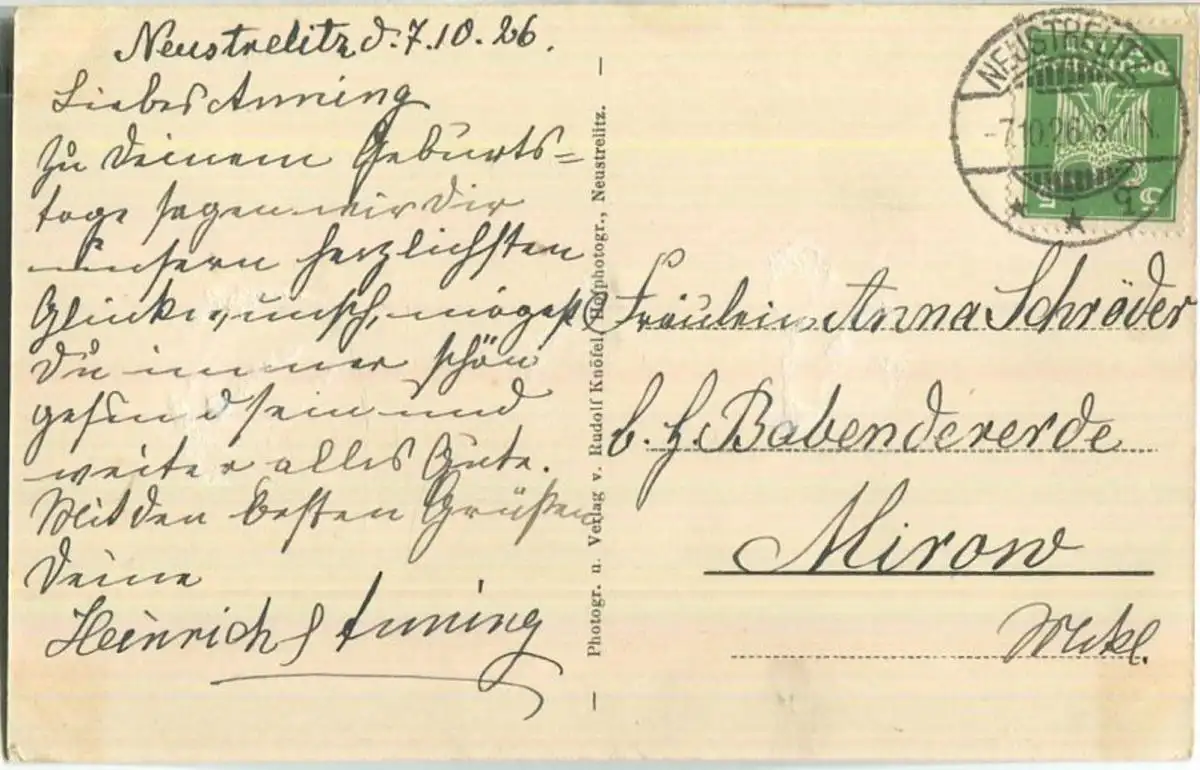 Neustrelitz d. 7.10.26.
Liebes Anning
Zu Deinem Geburts=
tage sagen wir Dir
unsern herzlichsten
Glückwunsch, mögest
Du immer schön
gesund sein und
weiter alles Gute.
Mit den besten Grüßen
Deine
Heinrich Anning
Photogr. u. Verlag v. Rudolf Knöfel, Hofphotogr., Neustrelitz.
NEUSTRELITZ
-7.10.26.
Fräulein Anna Schröder
b. H. Babendererde
Mirow
Meckl.